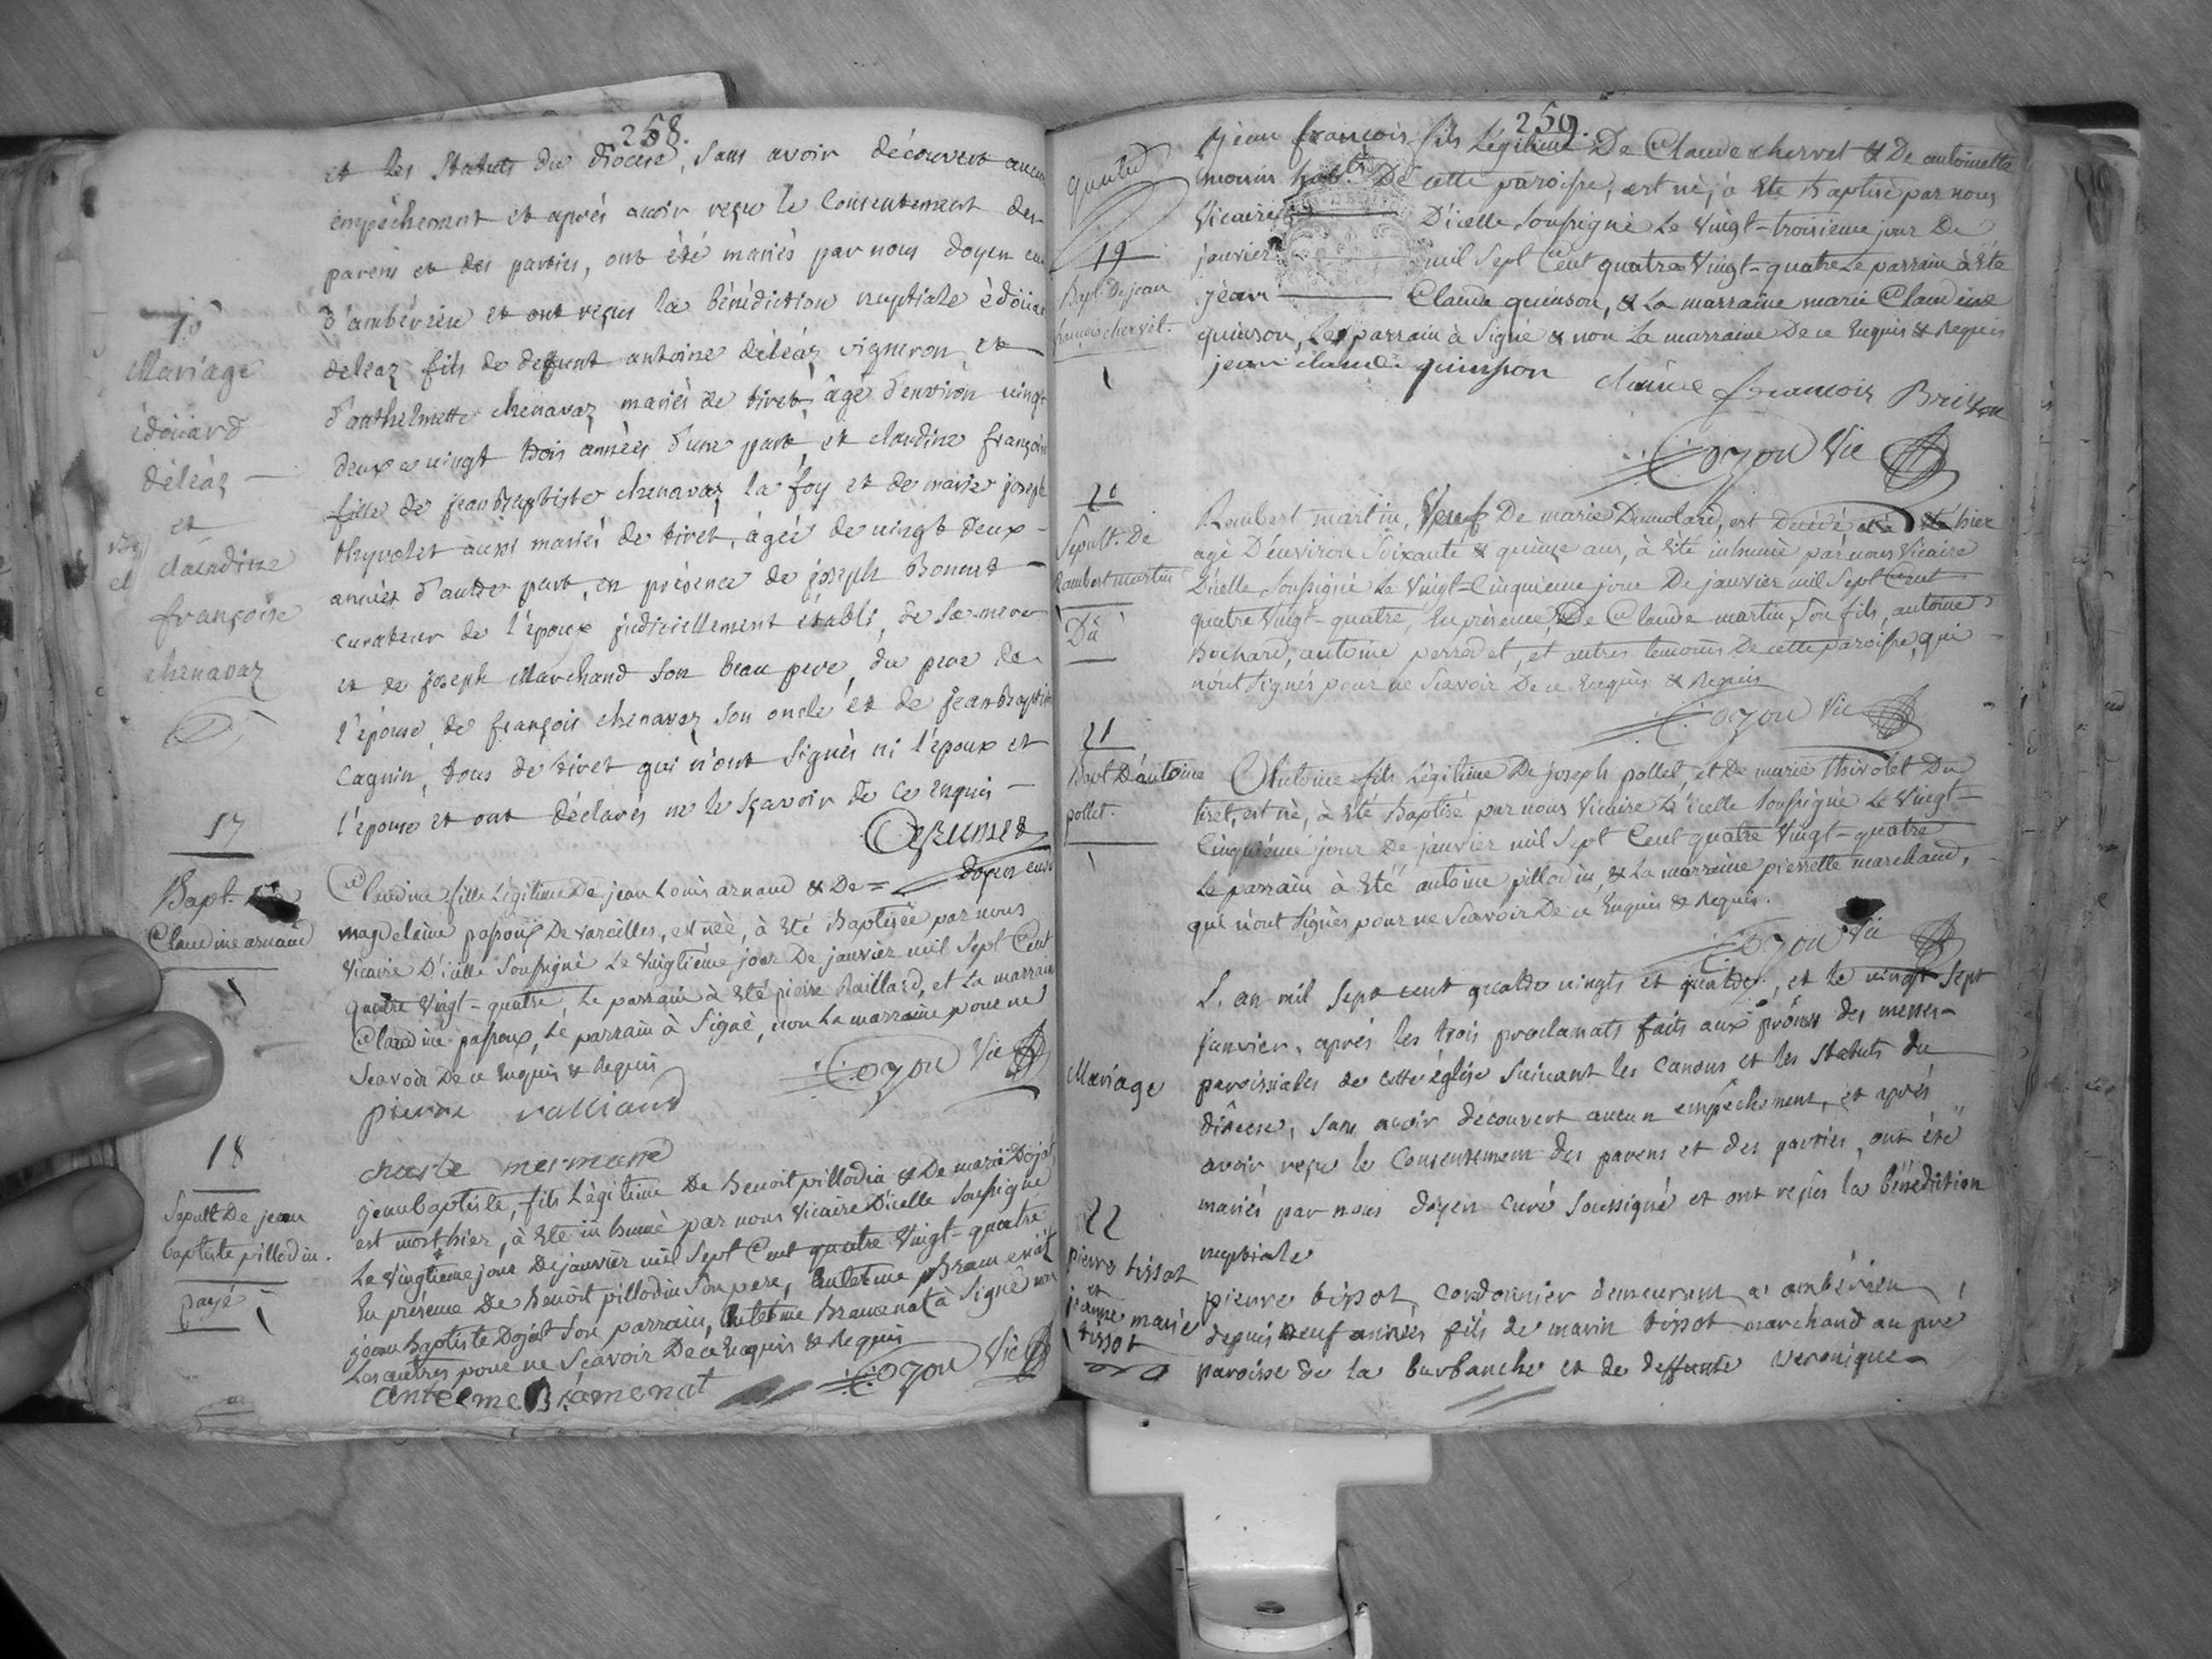 258.
et les Statuts du diocese, sans avoir découvert aucun
empêchement et aprés avoir reçu le Consentement des
parens et des parties, ont été mariés par nous doyen curé
d'ambérieu et ont reçus la bénédiction nuptiale édoüard
déléaz fils de deffunt antoine déléaz vigneron et
d'anthelmette chenavaz mariés de tiret, âgé d'environ vingt
deux a vingt trois années d'une part, et claudine françoise
fille de jeanBaptiste chenavaz la foy et de marie joseph
thyvolet aussi mariés de tiret, âgée de vingt deux
années d'autre part, en présence de joseph Bonnard
curateur de l'époux judiciellement établi, de sa mere
et de joseph Marchand son beau pere, du pere de
l'épouse, de françois chenavaz son oncle et de jeanBaptiste
Cagnin, tous de tiret qui n'ont signés ni l'époux et
l'épouse et ont déclarés ne le sçavoir de ce enquis
doyen curé
Mariage
édoüard
déléaz
et
claudine
françoise
chenavaz
17
Bapt. De
Claudine arnaud
Claudine fille Légitime De jean Louis arnaud & De =
magdelaine passoux De vareilles, est née, à Eté Baptisée par nous
Vicaire D'icelle Soussigné Le Vingtième jour De janvier mil Sept Cent
quatre Vingt-quatre, Le parrain à Eté pierre Raillard, et La marraine
Claudine passoux, Le parrain à Signé, non La marraine pour ne
Scavoir De ce Enquis & Requis
Cozon Vic
pierre ralliard
charle mermand
18
Sepult De jean
baptiste pillodin.
payé
jeanbaptiste, fils Légitime De Benoit pillodin & De marie Dojat
est mort hier, à Eté inhumé par nous Vicaire D'icelle Soussigné
Le Vingtieme jour De janvier mil Sept Cent quatre Vingt-quatre
En présence De Benoît pillodin Son pere, Antelme Bramenat
jean Baptiste Dojat Son parrain, Antelme Bramenat à Signé non
Les autres pour ne Scavoir De ce Enquis & Requis
Cozon Vic
Antelme Bramenat
259.
19
Bapt. De jean
françois chervet.
jean françois fils Légitime De Claude chervet & De antoinette
monin habts De cette paroisse, est né, à Eté Baptisé par nous
Vicaire D'icelle Soussigné Le Vingt-troisieme jour De
janvier mil Sept Cent quatre Vingt-quatre Le parrain à Eté
jean Claude quinson, & La marraine marie Claudine
quinson, Le parrain à Signé & non La marraine De ce Enquis & Requis
jean claude quinson claude francois Brison
Cozon Vic
20
Sepult. De
Rambert martin
Dû
Rambert martin, Veuf De marie Dumolard, est Décédé hier
agé D'environ Soixante & quinze ans, à Eté inhumé par nous Vicaire
D'icelle Soussigné Le Vingt-Cinquieme jour De janvier mil Sept Cent
quatre Vingt-quatre, En présence De Claude martin, Son fils, antoine
Bochard, antoine perrodet, et autres temoins De cette paroisse, qui
n'ont Signés pour ne Scavoir De ce Enquis & Requis
Cozon Vic
21
Bapt D'antoine
pollet.
Antoine fils Légitime De joseph pollet, et De marie thivolet Du
tiret, est né, à Eté Baptisé par nous Vicaire D'icelle Soussigné Le Vingt-
Cinquiéme jour De janvier mil Sept Cent quatre Vingt-quatre
Le parrain à Eté antoine pillodin, & La marraine pierrette marchand,
qui n'ont Signés pour ne Scavoir De ce Enquis & Requis.
Cozon Vic
Mariage
22
pierre tissot
et
jeanne marie
tissot
L'an mil sept cent quatre vingts et quatre, et le vingt Sept
janvier, aprés les trois proclamats faits aux prônes des messes
paroissiales de cette église suivant les canons et les Statuts du
diocese, sans avoir découvert aucun empêchement, et aprés
avoir reçu le Consentement des parens et des parties, ont été
mariés par nous doyen curé soussigné et ont reçus la bénédiction
nuptiale
pierre tissot, cordonnier demeurant a ambérieu,
depuis neuf années fils de marin tissot marchand au pre
paroisse de la burbanche et de deffunte veronique